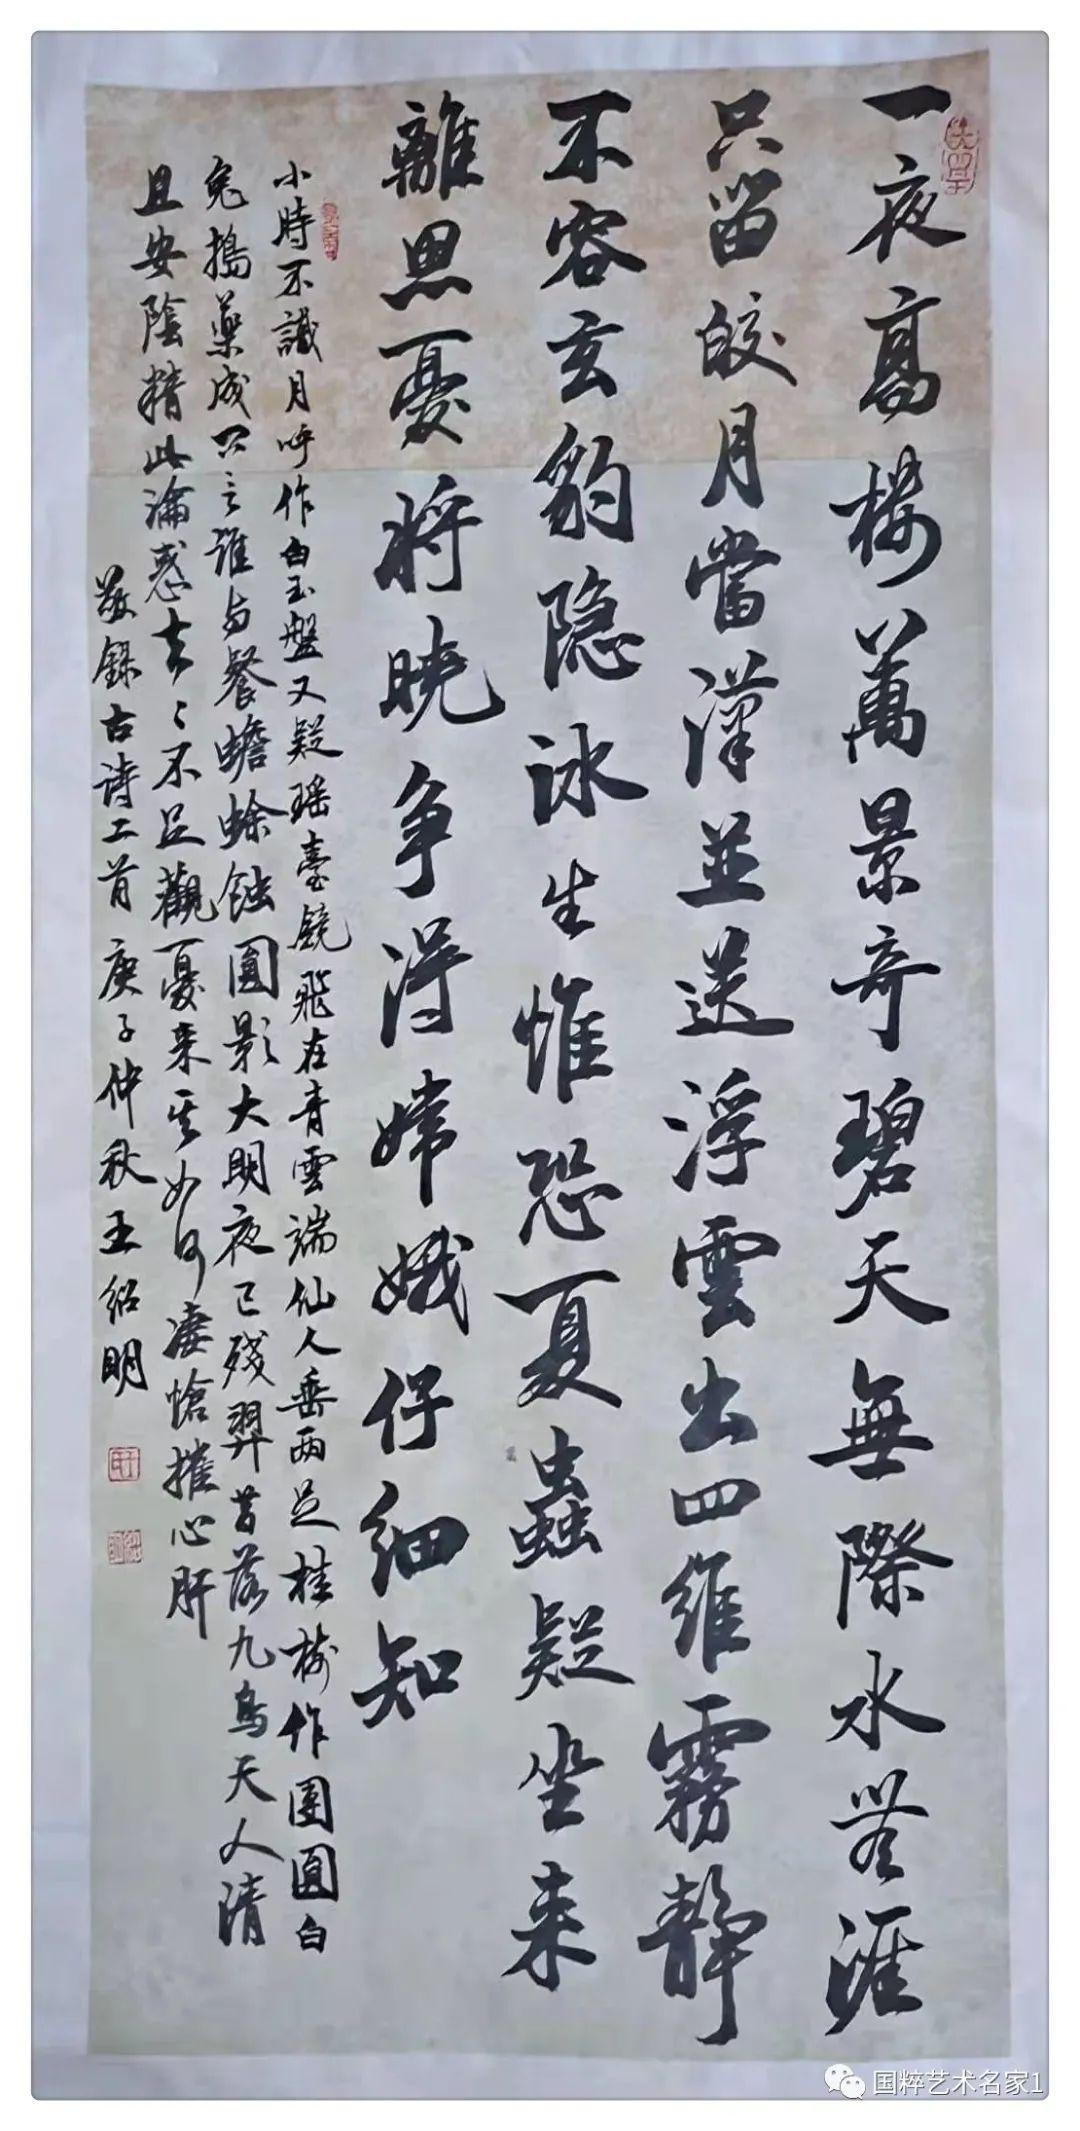 一夜高楼萬景奇碧天無際水無涯
只留皎月當漢並送浮雲出四維霧靜
不容玄豹隐詠生惟恐夏蟲疑坐来
離思憂将晓争得嫦娥仔细知
小時不識月呼作白玉盤又疑瑶臺鏡飛在青雲端仙人垂两足桂樹作團圓白
兔搗藥成问言誰与餐蟾蜍蝕圓影大明夜已殘羿昔落九烏天人清
且安陰精此淪惑去去不足觀憂来其如何凄愴摧心肝
敬録古诗二首庚子仲秋王绍明
国粹艺术名家1